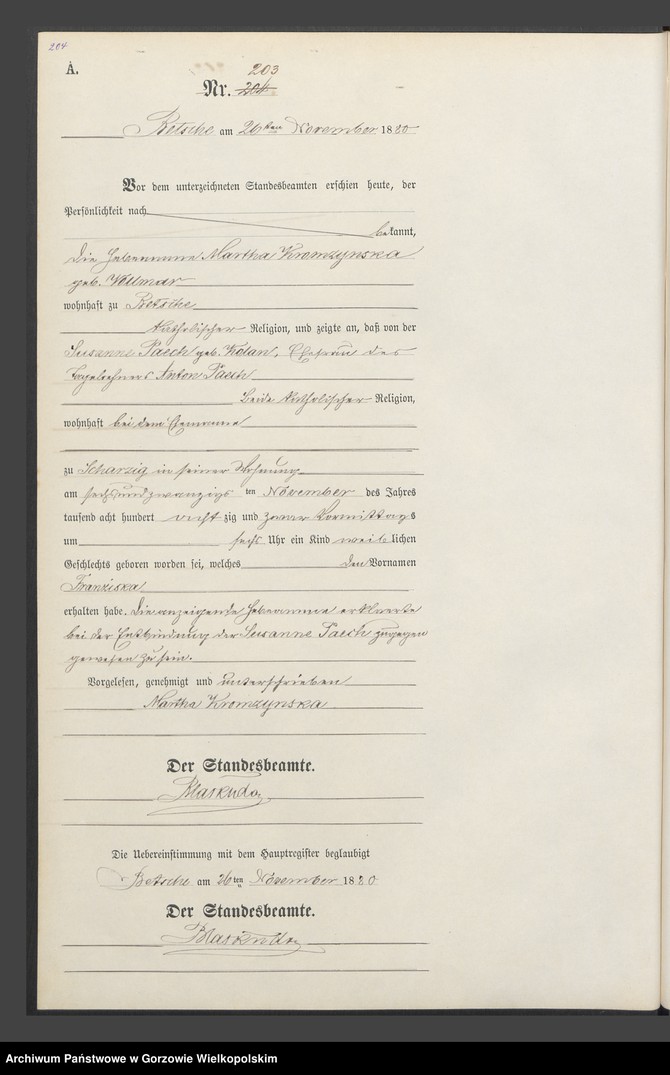 204
A.
203
Nr. 204
Betsche am 26ten November 1880
Vor dem unterzeichneten Standesbeamten erschien heute, der
Persönlichkeit nach
bekannt,
die Hebeamme Martha Kromzynska
geb. Vollmar
wohnhaft zu Betsche
katholischer Religion, und zeigte an, daß von der
Susanne Paech geb. Kolan, Ehefrau des
Tagelöhners Anton Paech
beide katholischer Religion,
wohnhaft bei dem Ehemanne
zu Scharzig in seiner Wohnung
am sechsundzwanzigs ten November des Jahres
tausend acht hundert acht zig und zwar Vormittags
um sechs Uhr ein Kind weib lichen
Geschlechts geboren worden sei, welches den Vornamen
Franziska
erhalten habe. Die anzeigende Hebeamme erklärte
bei der Entbindung der Susanne Paech zugegen
gewesen zu sein.
Vorgelesen, genehmigt und unterschrieben
Martha Kromzynska
Der Standesbeamte.
Die Uebereinstimmung mit dem Hauptregister beglaubigt
Betsche am 26ten November 1880
Der Standesbeamte.
Archiwum Państwowe w Gorzowie Wielkopolskim